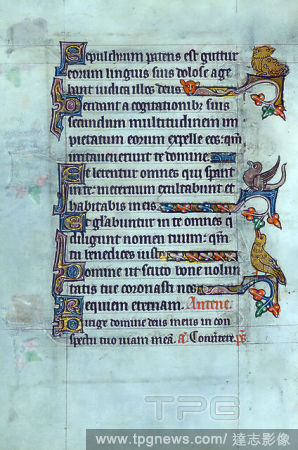 Sepulchrum patens est guttur
eorum linguis suis dolose age
bant iudica illos deus
Decidant a cogitationib; suis
secundum multitudinem im
pietatum eorum expelle eos: qm̄
irritaverunt te domine
Et letentur omnes qui sperant
in te: in eternum exultabunt et
habitabis in eis.
Et gl'abuntur in te omnes q
diligunt nomen tuum: qm̄
tu benedices iusto
Domine ut scuto bone volun
tatis tue coronasti nos
Requiem eternam. Antene
Dirige domine deus meus in con
spectu tuo viam meā. a. Convertere. ps.
TPG
www.tpgnews.com/ 達志影像